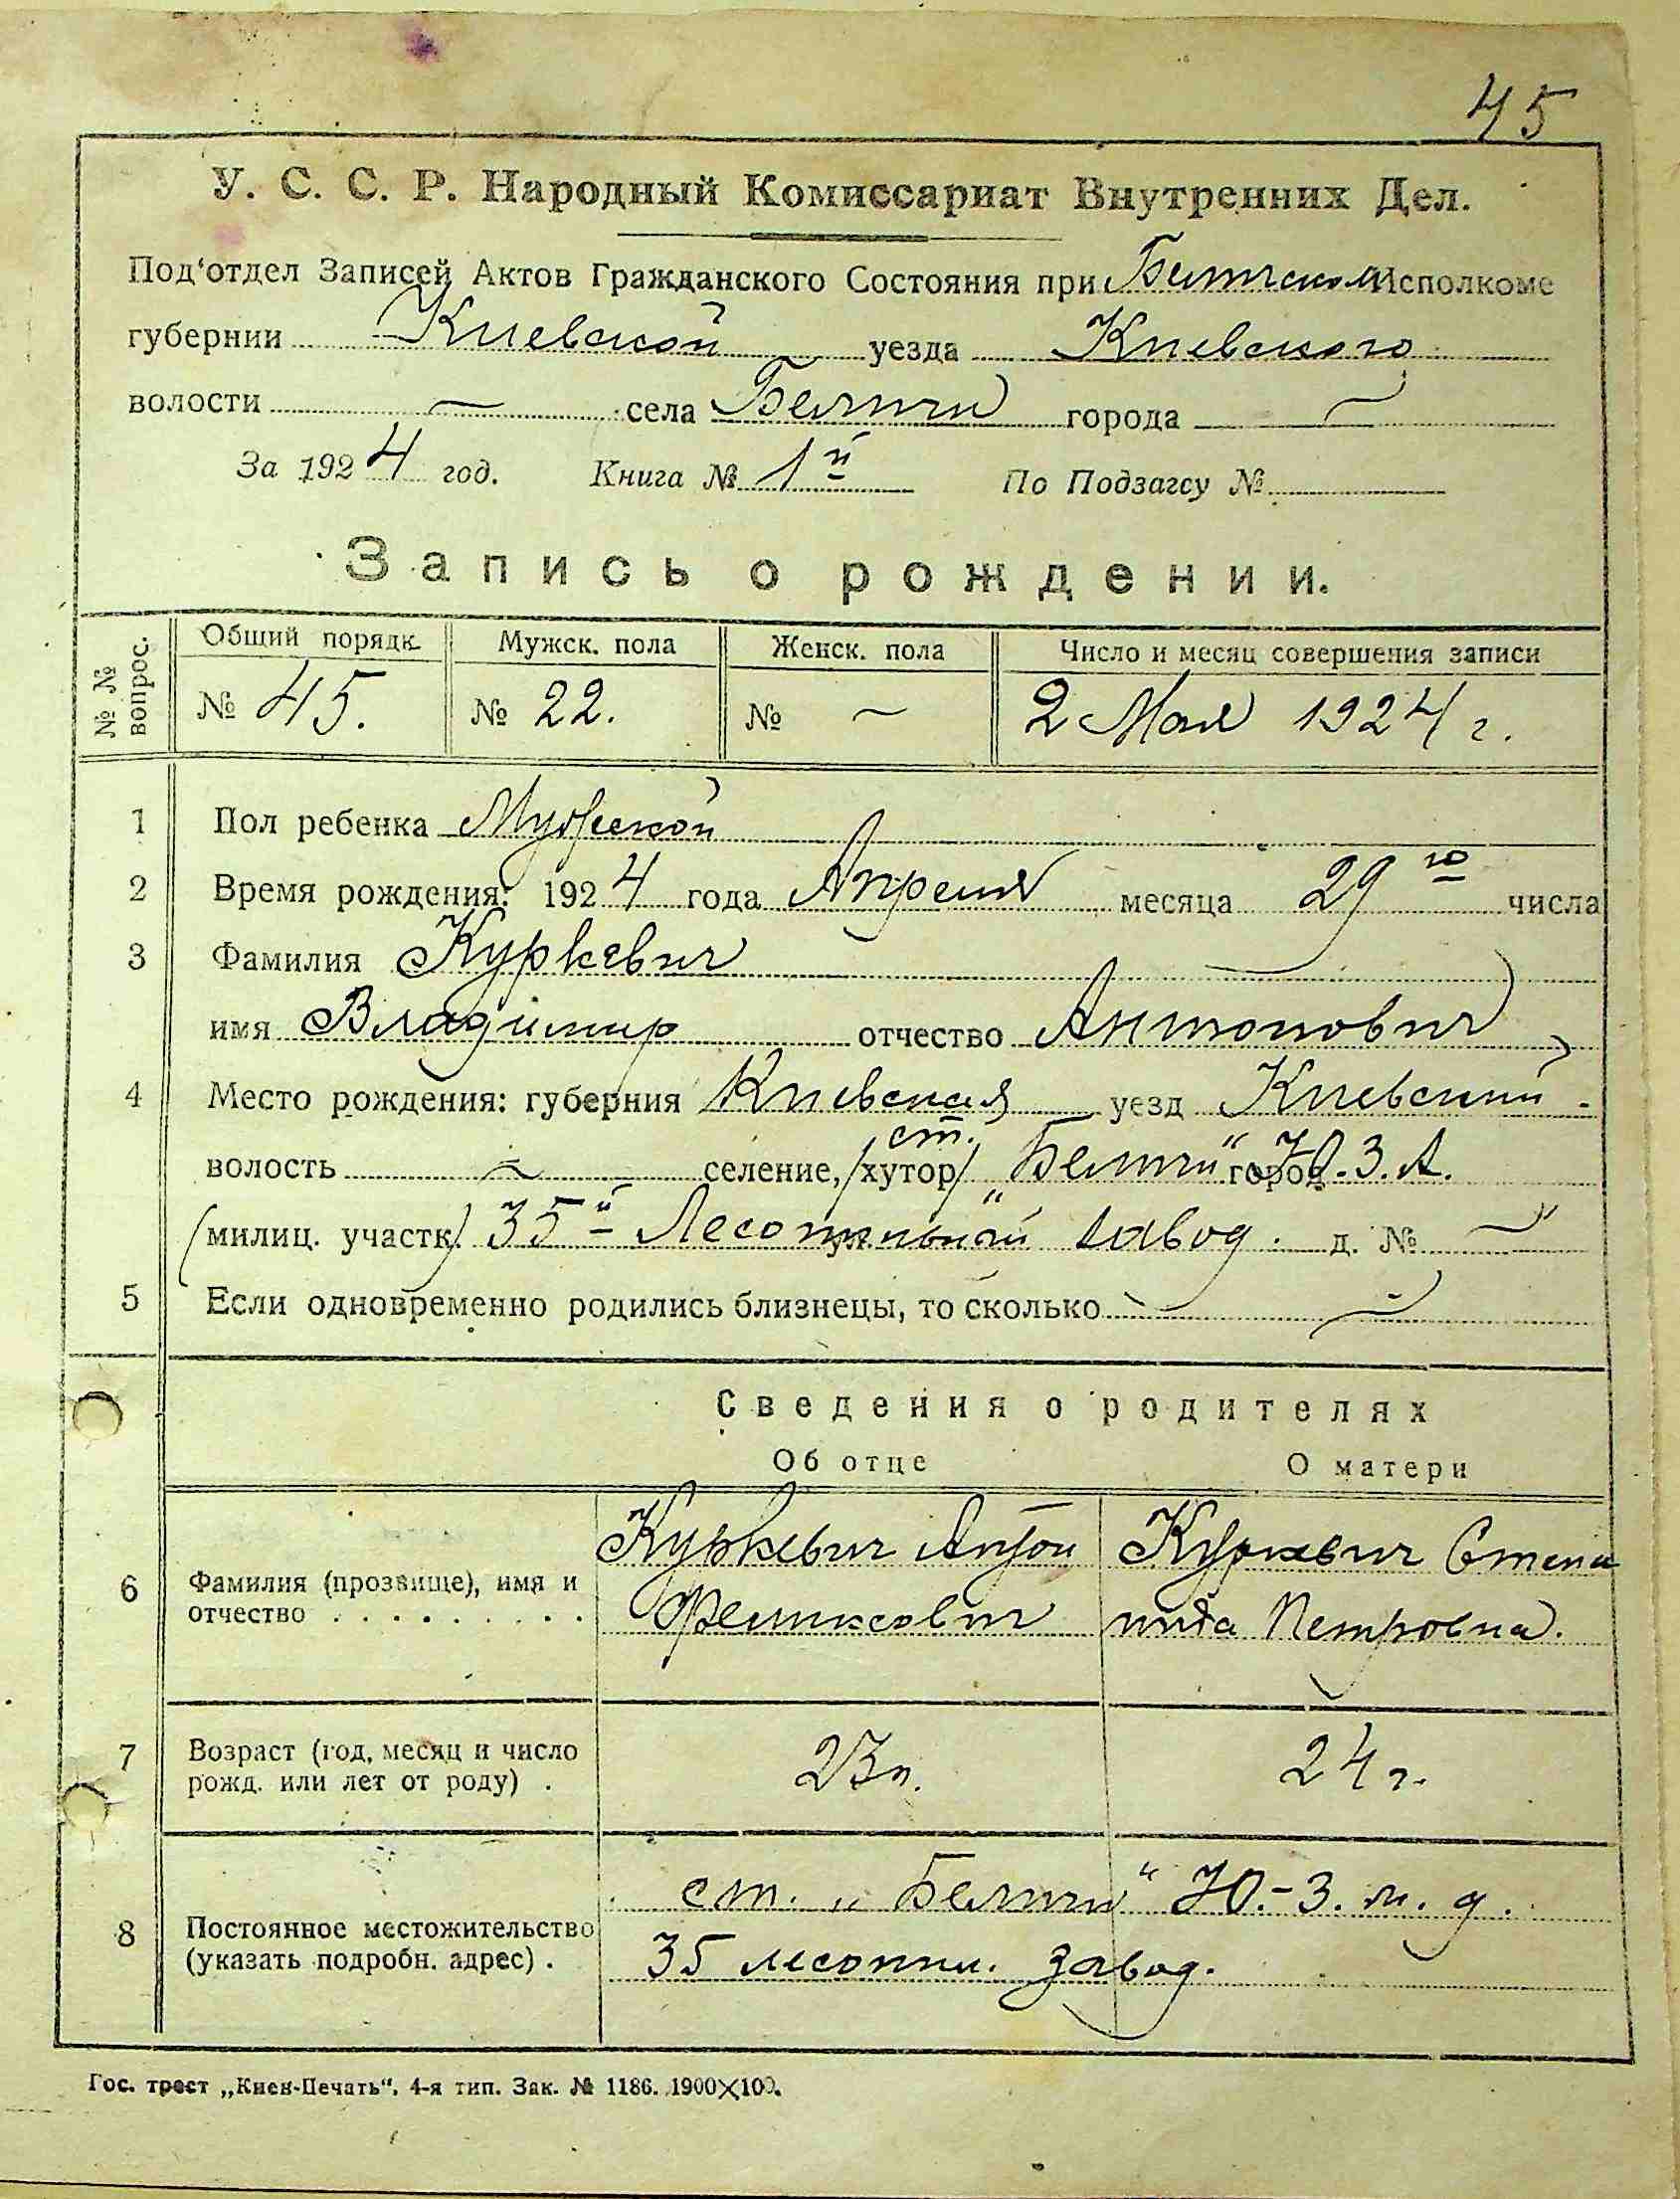 45
У. С. С. Р. Народный Комиссариат Внутренних Дел.
Под'отдел Записей Актов Гражданского Состояния при Исполкоме
губернии Киевской уезда Киевского
волости — села Беличи города —
За 1924 год. Книга № 1й По Подзагсу №
Запись о рождении.
№ № вопрос.
Общий порядк. Мужск. пола Женск. пола Число и месяц совершения записи
№ 45. № 22. № — 2 Мая 1924 г.
1 Пол ребенка Мужской
2 Время рождения: 1924 года Апреля месяца 29го числа
3 Фамилия Куркевич
имя Владимир отчество Антонович
4 Место рождения: губерния Киевская уезд Киевский.
ст.
волость — селение, /хутор/ „Беличи“ город Ю.З.
(милиц. участк.) 35й Лесопильный завод. д. № —
5 Если одновременно родились близнецы, то сколько —
Сведения о родителях
Об отце О матери
Куркевич Антон Куркевич Степа
6 Фамилия (прозвище), имя и
отчество . . . . . . . . . Феликсович нида Петровна.
7 Возраст (год, месяц и число
рожд. или лет от роду) . 23 г. 24 г.
ст. „Беличи“ Ю.-З. ж. д.
8 Постоянное местожительство
(указать подробн. адрес) . 35 лесопил. завод.
Гос. трест „Киев-Печать“. 4-я тип. Зак. № 1186. 1900×100.